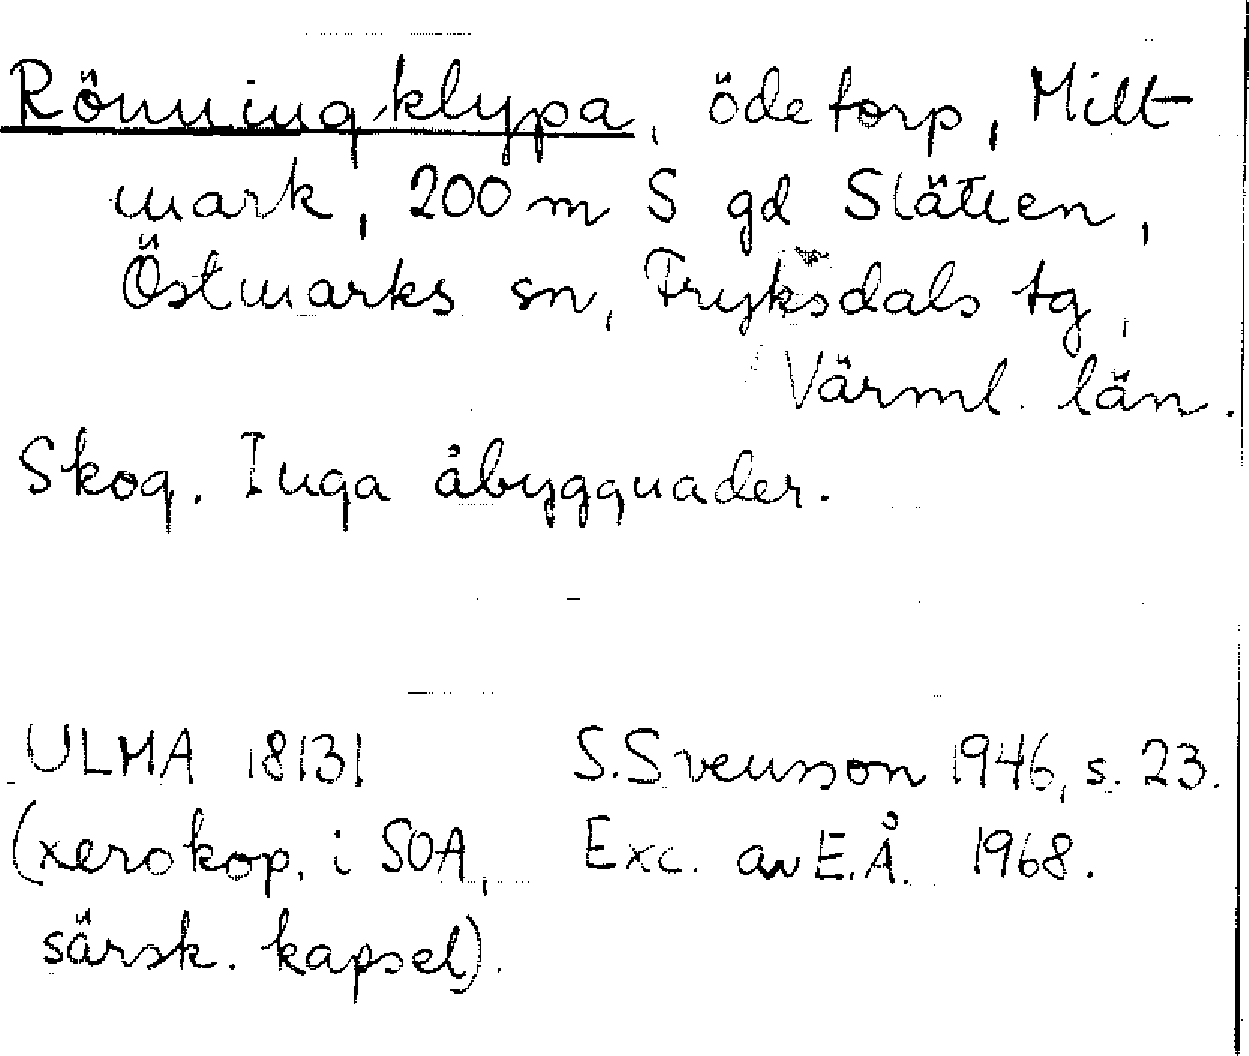 Rönningklypa, ödetorp, Mitt-
mark, 200 m S gd Slätten,
Östmarks sn, Fryksdals tg,
Värml. län.
Skog. Inga åbyggnader.
ULMA 18131 S. Svensson 1946, s. 23.
(xerokop. i SOA, Exc. av E.Å. 1968.
särsk. kapsel).